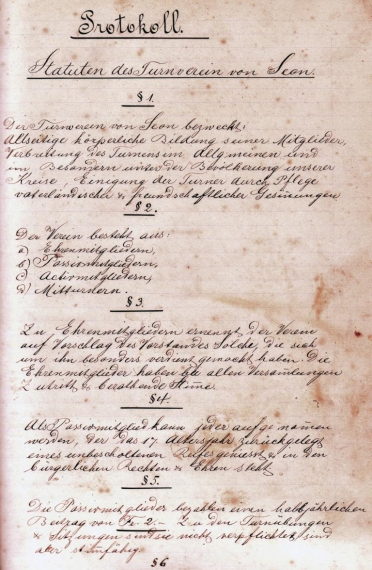 Protokoll.
Statuten des Turnverein von Seon.
§ 1.
Der Turnverein von Seon bezweckt:
Allseitige körperliche Bildung seiner Mitglieder,
Verbreitung des Turnens im Allgmeinen und
im Besondern unter der Bevölkerung unserer
Kreise, Einigung der Turner durch Pflege
vaterländischer & freundschaftlicher Gesinungen
§ 2.
Der Verein besteht aus:
a) Ehrenmitgliedern,
b) Passivmitgliedern,
c) Activmitgliedern,
d) Mitturnern.
§ 3.
Zu Ehrenmitgliedern ernennt der Verein
auf Vorschlag des Vorstandes Solche, die sich
um ihn besonders verdient gemacht haben. Die
Ehrenmitglieder haben bei allen Versamlungen
Zutritt & berathende Stime
§ 4.
Als Passivmitglied kann jeder aufgenomen
werden, der das 17. Altersjahr zurückgelegt
eines unbescholtenen Rufes geniesst & in den
bürgerlichen Rechten & Ehren steht
§ 5.
Die Passivmitglieder bezahlen einen halbjährlichen
Beitrag von Fr. 2.- Zu den Turnübungen
& Sitzungen sind sie nicht verpflichtet sind
aber
§ 6